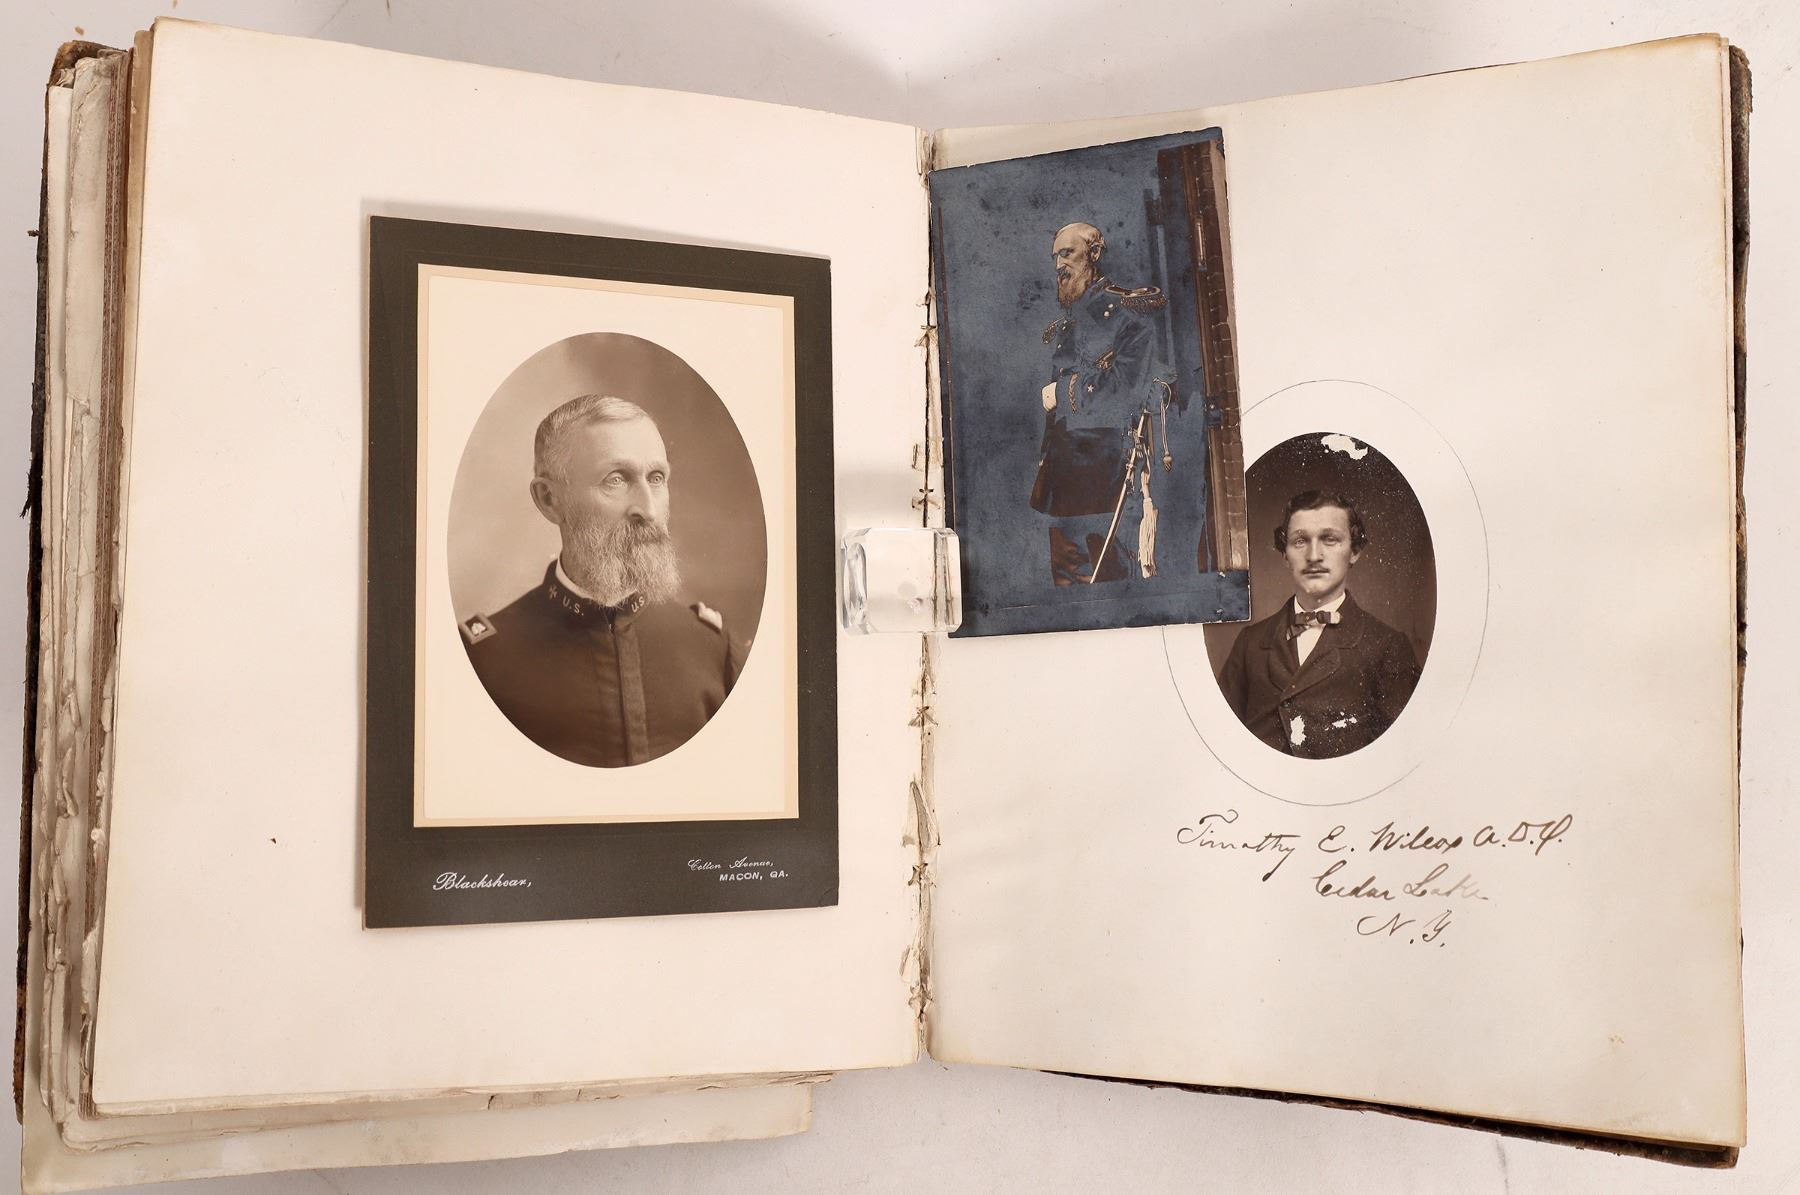 U.S.
U.S
Blackshear,
Cotton Avenue,
MACON, GA.
Timothy E. Wilcox A.D.Φ.
Cedar Lake
N.Y.